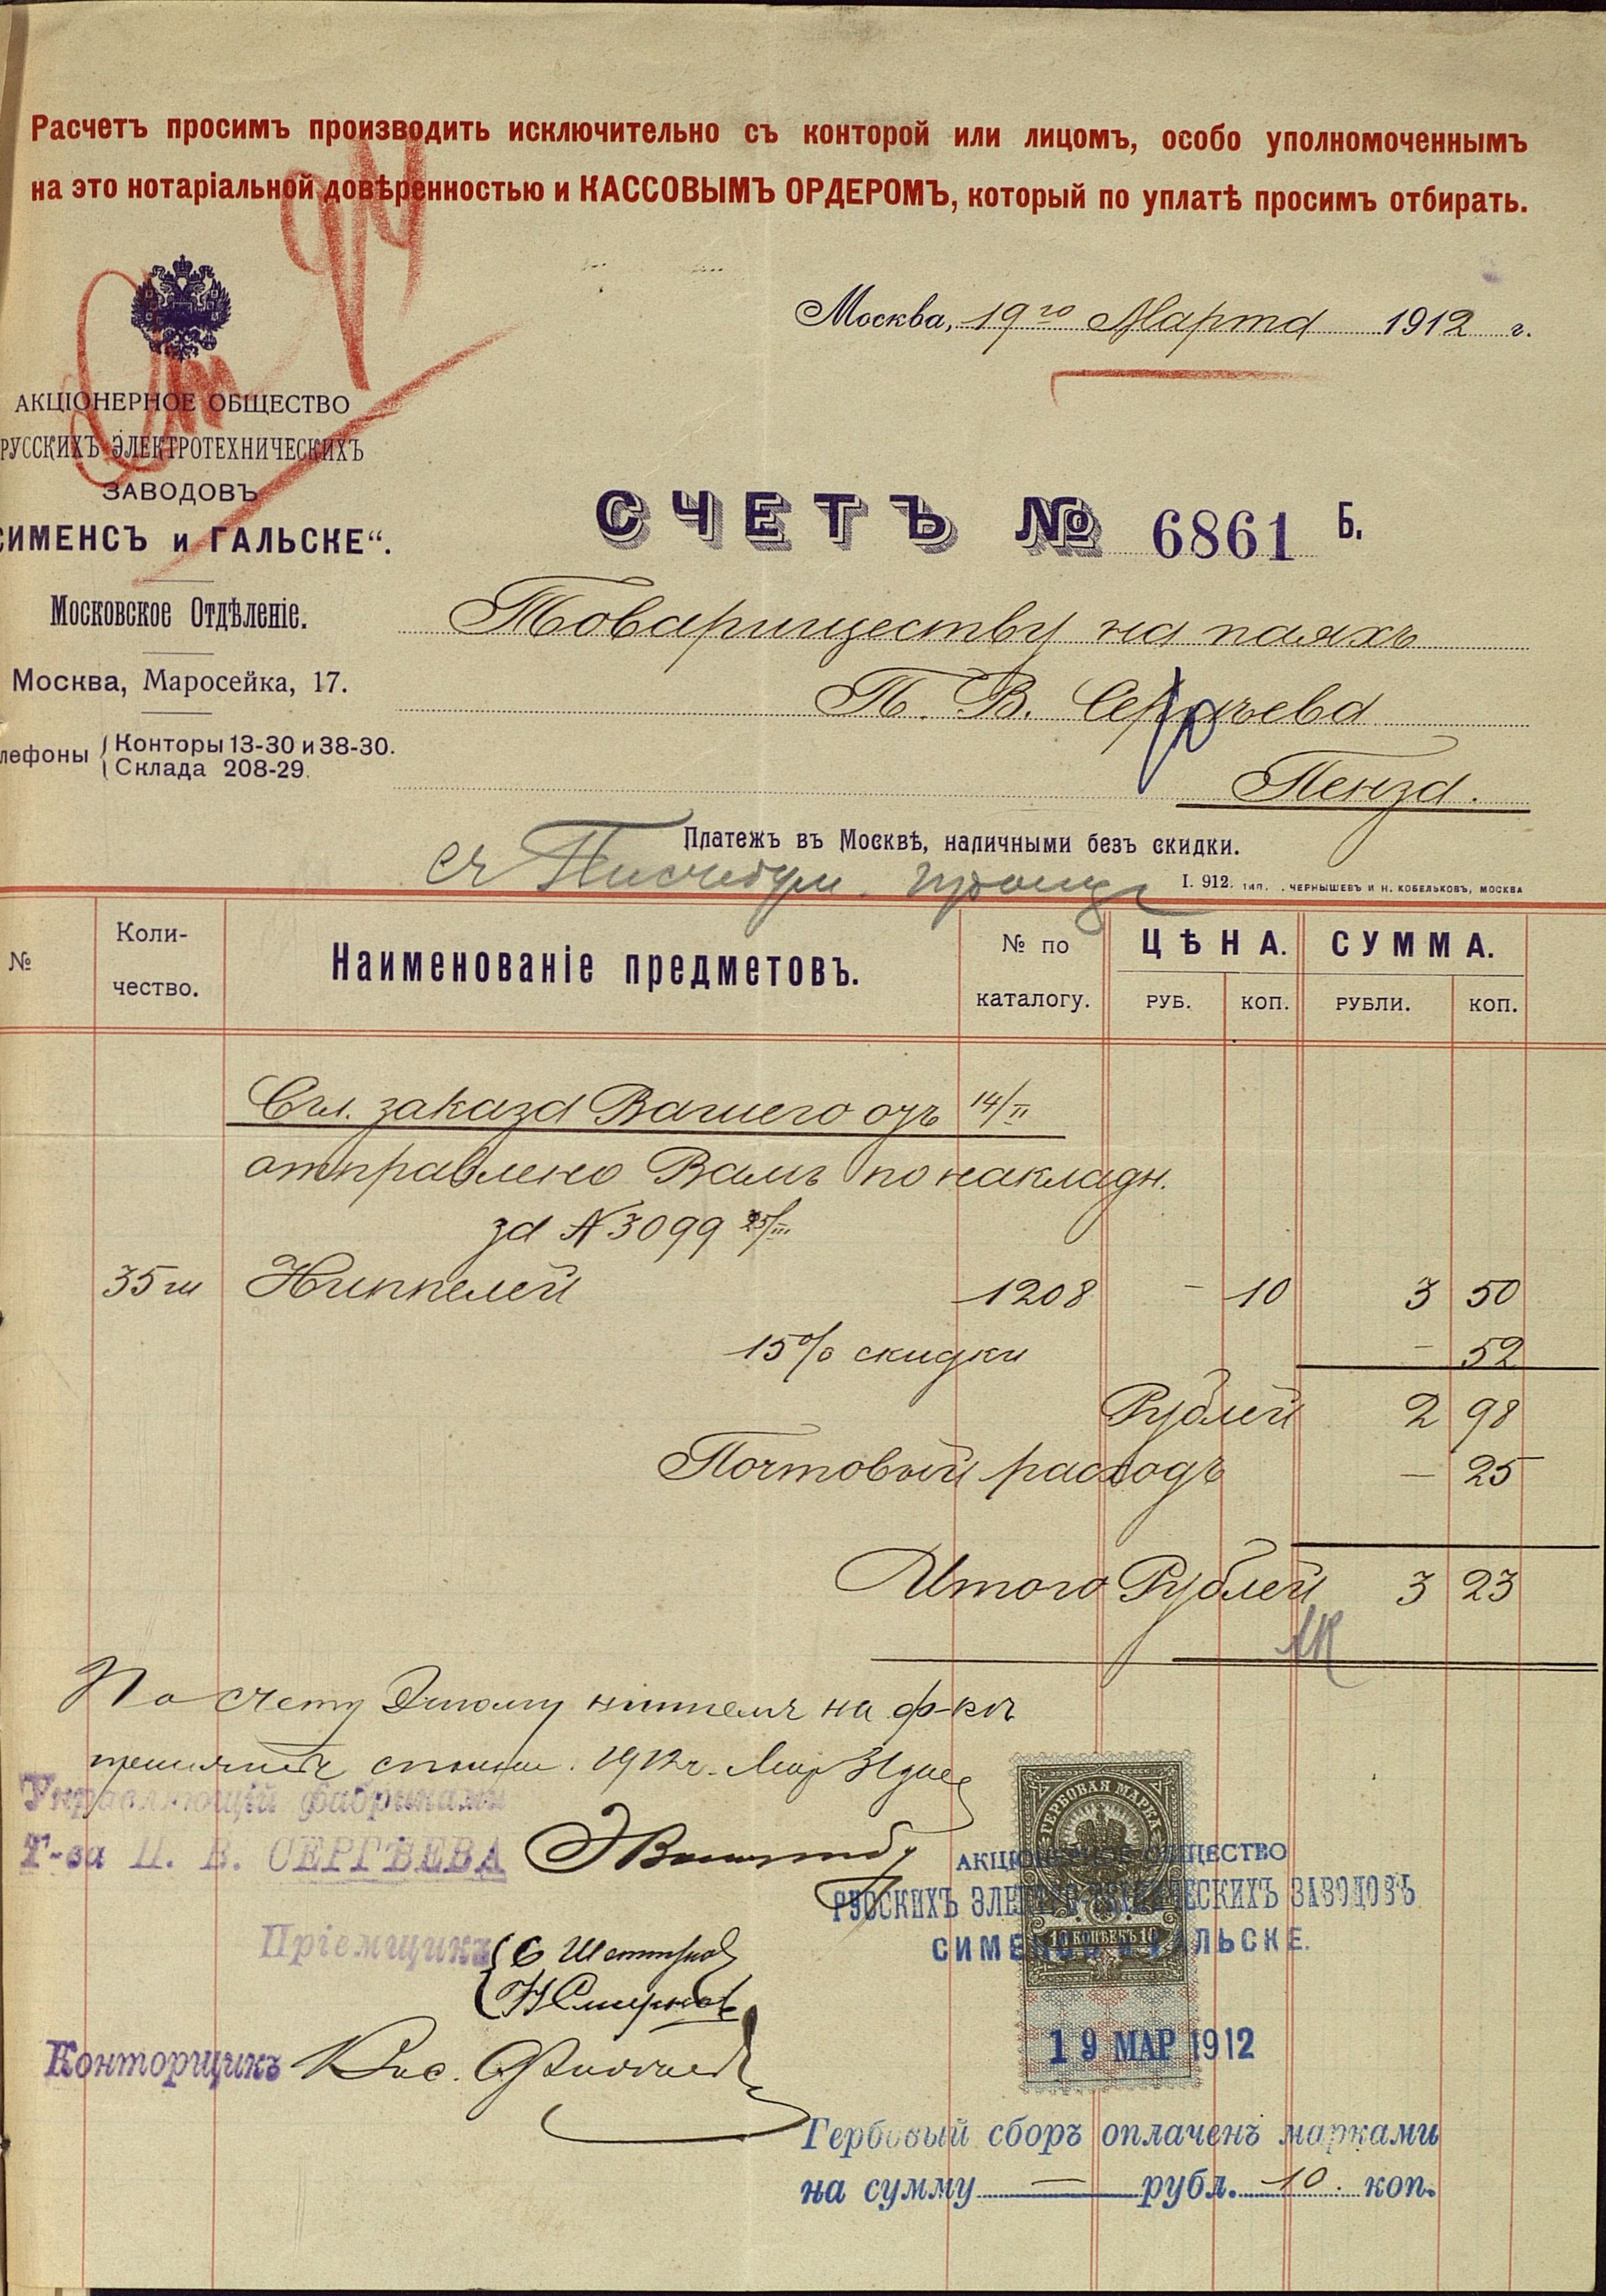 Расчетъ просимъ производить исключительно съ конторой или лицомъ, особо уполномоченнымъ
на это нотаріальной довѣренностью и КАССОВЫМЪ ОРДЕРОМЪ, который по уплатѣ просимъ отбирать.
Москва, 19го Марта 1912 г.
АКЦІОНЕРНОЕ ОБЩЕСТВО
РУССКИХЪ ЭЛЕКТРОТЕХНИЧЕСКИХЪ
ЗАВОДОВЪ
СИМЕНСЪ и ГАЛЬСКЕ“.
Московское Отдѣленіе.
Москва, Маросейка, 17.
лефоны { Конторы 13-30 и 38-30.
Склада 208-29.
СЧЕТЪ № 6861 Б.
Товариществу на паяхъ
П. В. Сергѣева
Пенза.
Платежъ въ Москвѣ, наличными безъ скидки.
I. 912. тип. ЧЕРНЫШЕВЪ И Н. КОБЕЛЬКОВЪ, МОСКВА
№
Коли-
чество.
Наименованіе предметовъ.
№ по
каталогу.
ЦѢНА.
РУБ. КОП.
СУММА.
РУБЛИ. КОП.
Сгл. заказа Вашего отъ 14/II
отправлено Вамъ по накладн.
за № 3099 25/III
35 ш Ниппелей 1208 - 10 3 50
15% скидки - 52
Рублей 2 98
Почтовый расходъ - 25
Итого Рублей 3 23
По счету этому ниппель на ф-кѣ
1912 г. Мар 31 дня
Управляющій фабриками
Т-ва П. В. СЕРГѢЕВА
Пріемщикъ
Н Смирновъ
Конторщикъ
ГЕРБОВАЯ МАРКА
10 КОПѢЕКЪ 10
АКЦІОНЕРНОЕ ОБЩЕСТВО
РУССКИХЪ ЭЛЕКТРОТЕХНИЧЕСКИХЪ ЗАВОДОВЪ
СИМЕНСЪ и ГАЛЬСКЕ.
19 МАР 1912
Гербовый сборъ оплаченъ марками
на сумму — рубл. 10. коп.